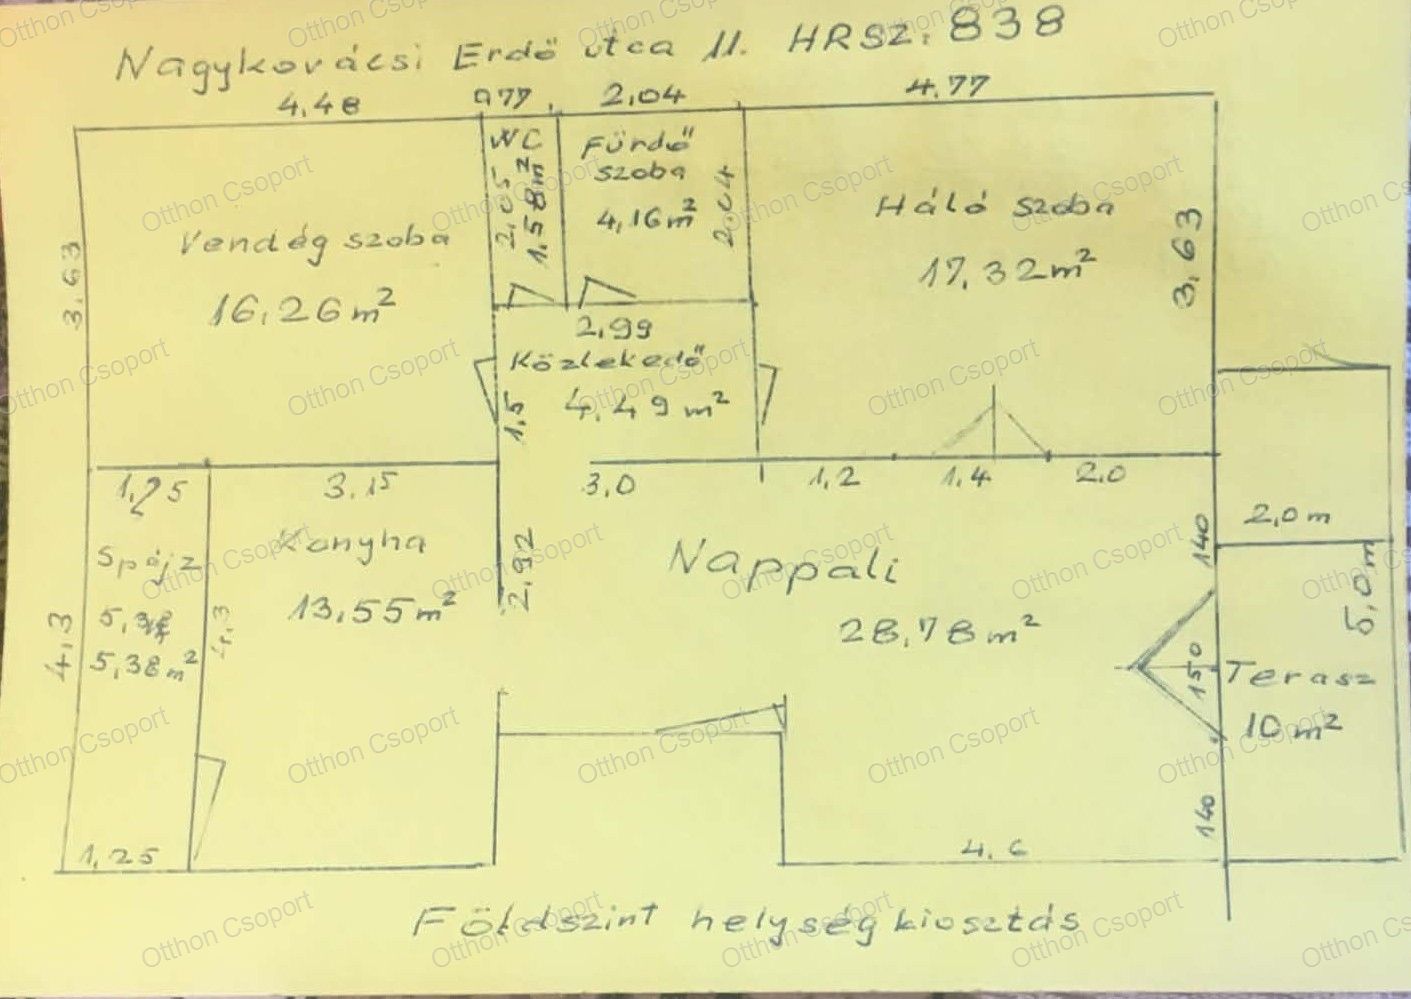 Nagykovácsi Erdő utca 11. HRSZ: 838
4,48
0,77
2,04
4.77
WC
2,05
1,58m²
Fürdő
szoba
4,16m²
2,04
Háló szoba
17,32m²
3,63
Vendég szoba
16,26m²
3,63
2,99
Közlekedő
4,49m²
1,5
1,25
3,15
3,0
1,2
1,4
2,0
2,0m
Konyha
13,55m²
Spájz
5,38m²
4,3
4,3
2,92
Nappali
28,78m²
140
150
140
5,0m
Terasz
10m²
1,25
4,6
Földszint helység kiosztás
Otthon Csoport